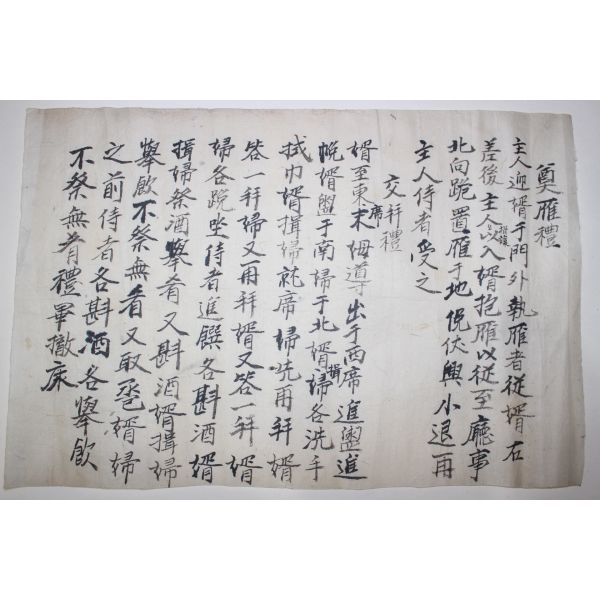 奠雁禮
主人迎婿于門外執雁者從婿右
差後主人以入婿抱雁以從至廳事
北向跪置雁于地俛伏興小退再
主人侍者受之
交拜禮
婿至東席末姆導出于西席進盥進
帨婿盥于南婦于北婿婦各洗手
拭巾婿揖婦就席婦先再拜婿
答一拜婦又再拜婿又答一拜婿
婦各跪坐侍者進饌各斟酒婿
揖婦祭酒擧肴又斟酒婿揖婦
擧飮不祭無肴又取巹婿婦
之前侍者各斟酒各擧飮
不祭無肴禮畢撤床